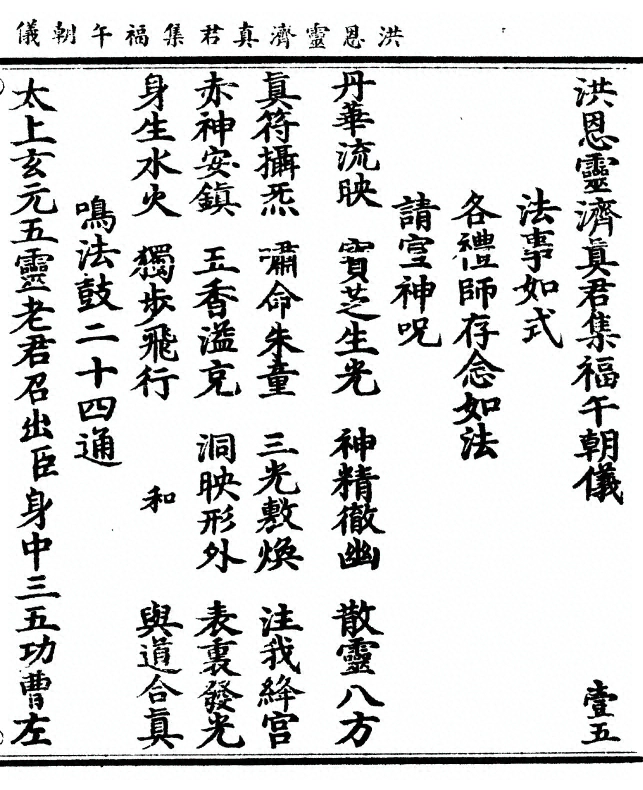 洪恩靈濟真君集福午朝儀
洪恩靈濟眞君集福午朝儀　壹五
法事如式
各禮師存念如法
請室神呪
丹華流映　寳芝生光　神精徹幽　散靈八方
眞符攝炁　嘯命朱童　三光敷煥　注我絳宮
赤神安鎮　五香溢充　洞映形外　表裏發光
身生水火　獨步飛行　和　與道合眞
鳴法鼓二十四通
太上玄元五靈老君召出臣身中三五功曹左